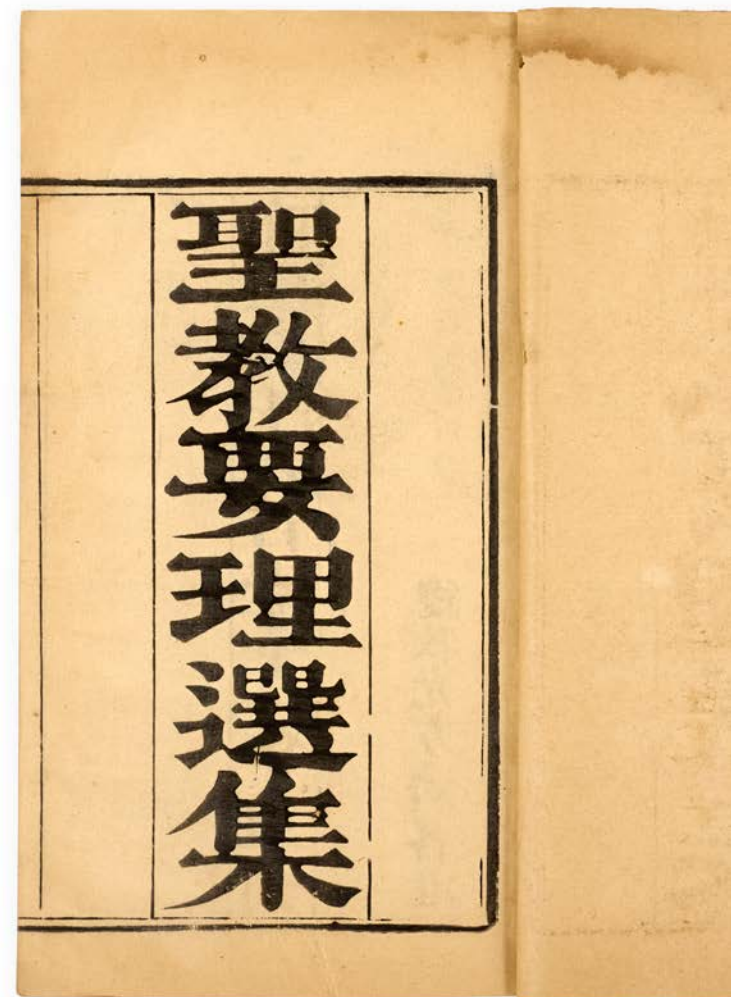 聖教要理選集